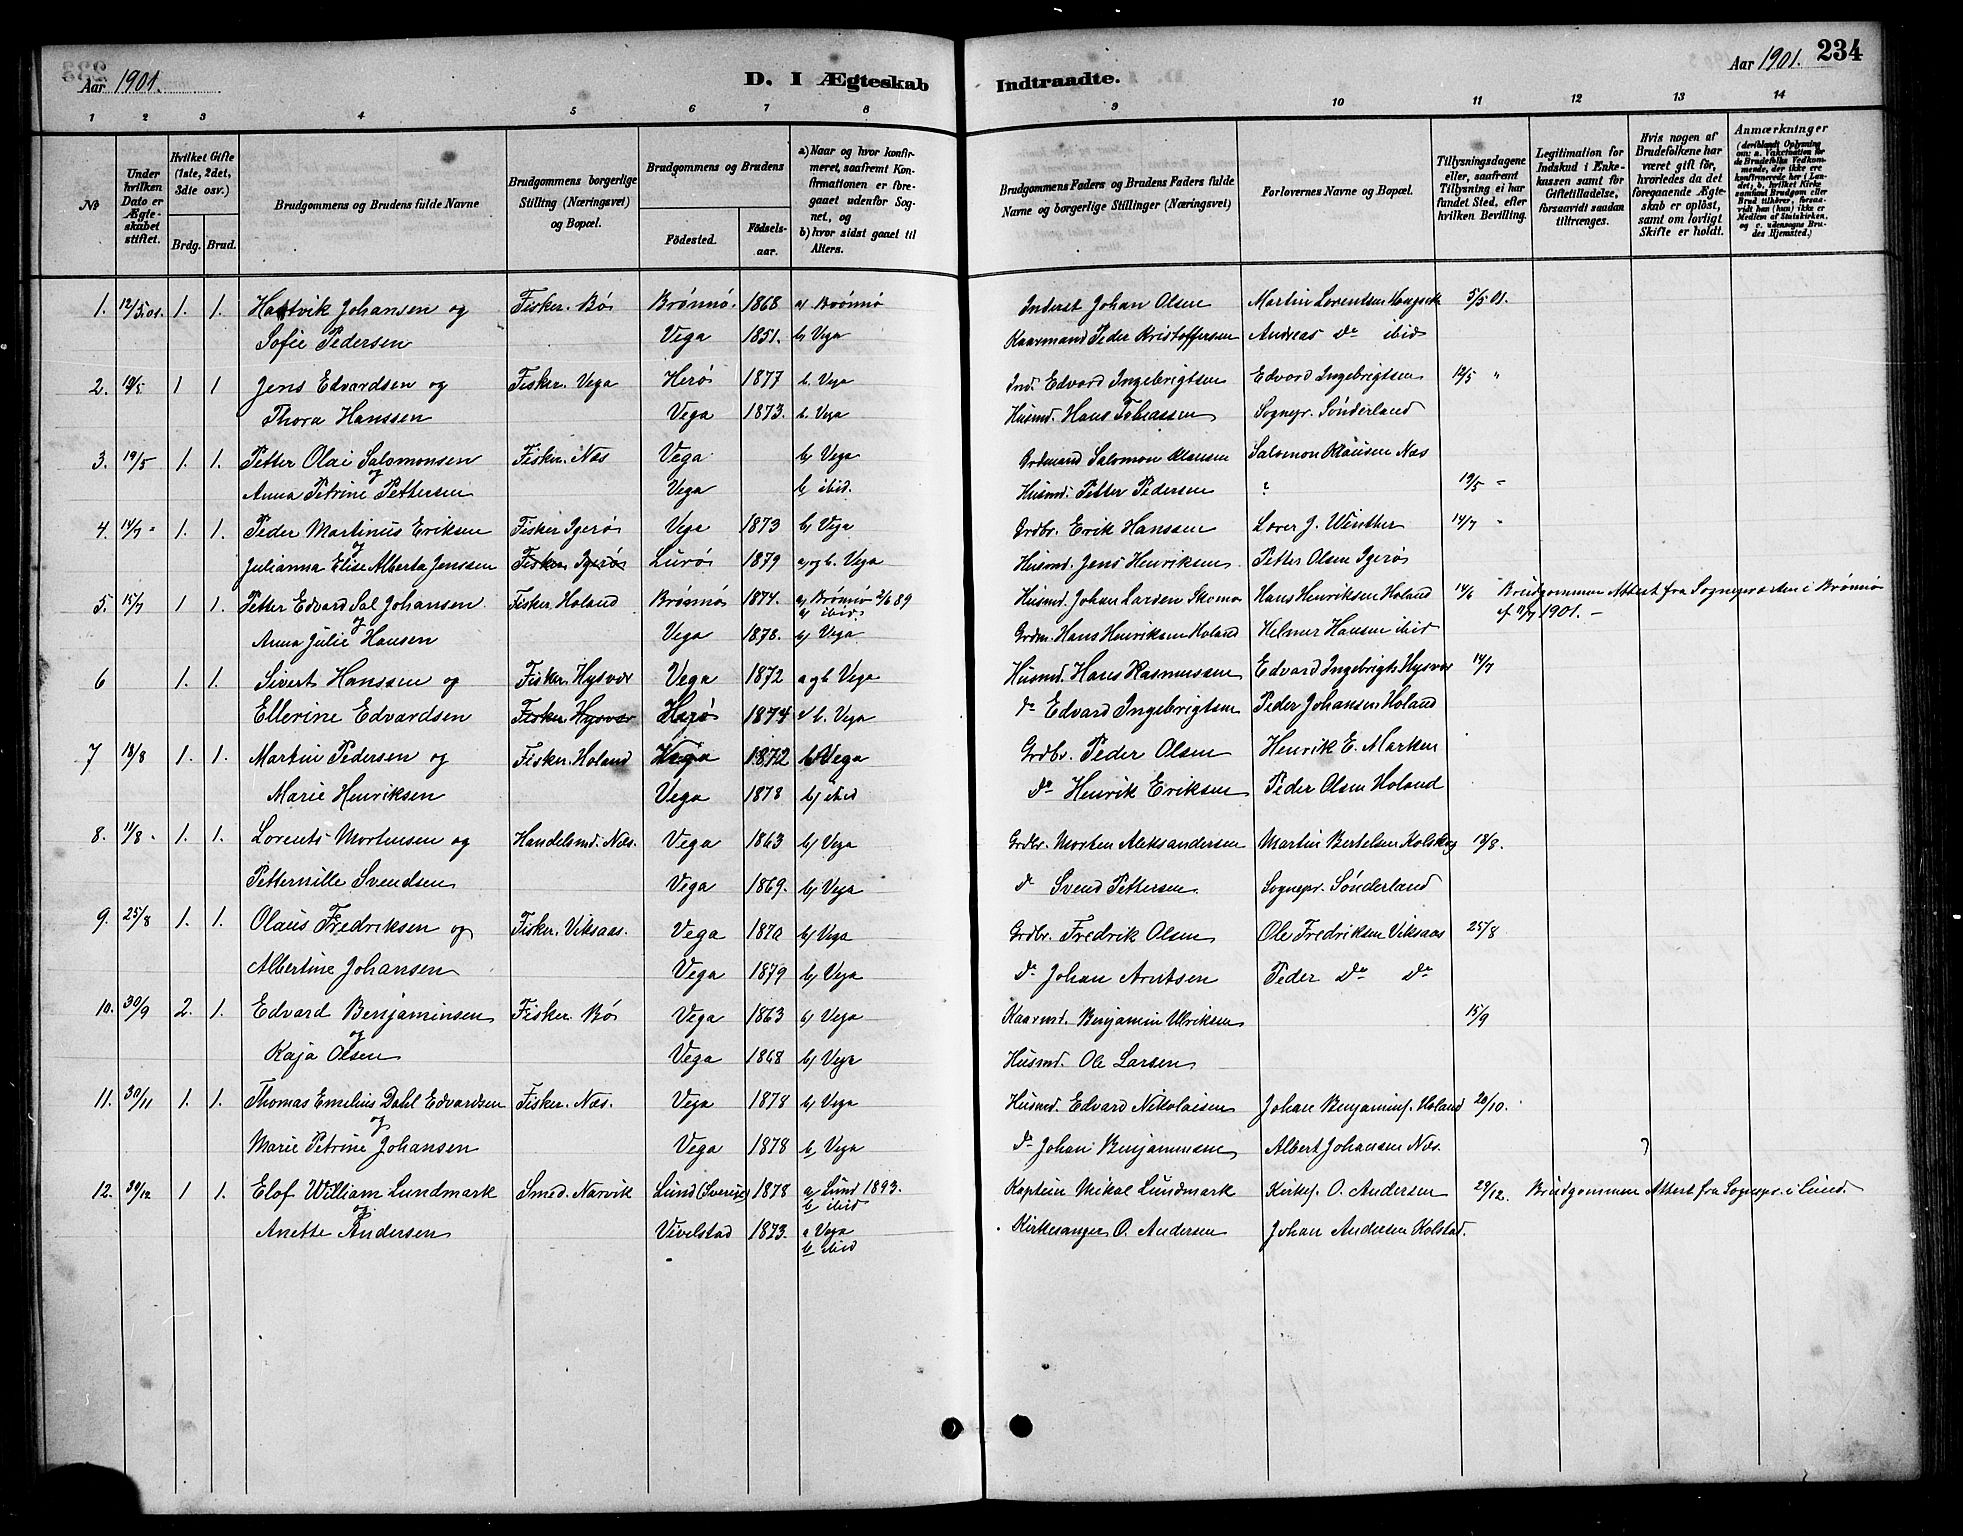 Aar 1901.
D. I Ægteskab Indtraadte.
Aar 1901. 234
1 2 3 4 5 6 7 8 9 10 11 12 13 14
No
Under hvilken Dato er Ægteskabet stiftet.
Hvilket Gifte (1ste, 2det, 3die osv.)
Brdg. Brud.
Brudgommens og Brudens fulde Navne
Brudgommens borgerlige Stilling (Næringsvei) og Bopæl.
Brudgommens og Brudens
Födested. Födselsaar.
a) Naar og hvor konfirmeret, saafremt Konfirmationen er foregaaet udenfor Sognet, og
b) hvor sidst gaaet til Alters.
Brudgommens Faders og Brudens Faders fulde Navne og borgerlige Stillinger (Næringsvei)
Forlovernes Navne og Bopæl.
Tillysningsdagene eller, saafremt Tillysning ei har fundet Sted, efter hvilken Bevilling.
Legitimation for Indskud i Enkekassen samt for Giftetilladelse, forsaavidt saadan tiltrænges.
Hvis nogen af Brudefolkene har været gift för, hvorledes da det foregaaende Ægteskab er oplöst, samt om lovligt Skifte er holdt.
Anmærkninger (deriblandt Oplysning om: a. Vaksination for de Brudefolks Vedkommende, der ikke ere konfirmerede her i Landet; b. hvilket Kirkesamfund Brudgom eller Brud tilhörer, forsaavidt han (hun) ikke er Medlem af Statskirken, og c. udensogns Brudes Hjemsted.)
1. 12/5.01. 1. 1. Hartvik Johansen og Fisker. Bø Brønnø. 1868 a/ Brønnø Inderst Johan Olsen Martin Lorentsen 5/5 01.
Sofie Pedersen Vega 1851. b/ Vega Kaarmand Peder Kristoffersen Andreas Do ibid
2. 19/5 1 1 Jens Edvardsen og Fisker. Vega Herø 1877 b. Vega Ind. Edvard Ingebrigtsen Edvard Ingebrigtsen 12/5 "
Thora Hanssen Vega 1873. b. Vega Husmd. Hans Tobiassen Sognepr. Sønderland
3. 19/5 1. 1. Petter Olai Salomonsen Fisker. Næs Vega b/ Vega Grdmand Salomon Klausen Salomon Klausen Næs
og
Anna Petrine Pettersen Vega b/ ibid. Husmd. Petter Pedersen ? 19/5 "
4. 14/7 " 1. 1. Peder Martinus Eriksen Fisker Igerø Vega 1873 b/ Vega Grdbr. Erik Hanssen Lærer J. Winther 14/7 "
og
Julianna Elise Alberta Jenssen Fisker Igerø Lurø 1879 a/og b. Vega Husmd. Jens Henriksen Petter Olsen Igerø
5. 15/7 1 1 Petter Edvard Sal Johansen Fisker. Holand Brønnø 1874. a/ Brønnø 2/6 89 Husmd. Johan Larsen Skomo Hans Henriksen Holand 14/6 Brudgommen Attest fra Sognepræsten i Brønnø
og b/ ibid. 1901. –
Anna Julie Hansen Vega 1878. b/ Vega Grdm. Hans Henriksen Holand Helmer Hansen ibid
6 1. 1. Sivert Hanssen og Fisker. Hysvær Vega 1872 a og b Vega Husmd. Hans Rasmussen Edvard Ingebrigts Hysvær 14/7
Ellerine Edvardsen Fisker Hysvær Herø 1874 b. Vega do Edvard Ingebrigtsen Peder Johansen Holand
7 18/8 1. 1. Martin Pedersen og Fisker. Holand Vega 1872 b/ Vega Grdbr. Peder Olsen Henrik E. Marken
Marie Henriksen Vega 1878 b/ ibid do Henrik Eriksen Peder Olsen Holand
8. 11/8 - 1. 1. Lorents Mortensen og Handelsmd. Næs. Vega 1863 b/ Vega Grdbr. Morten Aleksandersen Martin Bertelsen 18/8.
Petternille Svendsen Vega 1869. b/ Vega do Svend Pettersen. Sognepr. Sønderland
9. 25/8 1. 1. Olaus Fredriksen og Fisker. Viksaas. Vega 1870 b/ Vega Grdbr. Fredrik Olsen Ole Fredriksen Viksaas 25/8
Albertine Johansen Vega 1879 b/ Vega do Johan Arntsen Peder do do
10. 30/9 2. 1. Edvard Benjaminsen Fisker. Bø Vega 1863 b/ Vega Kaarmd. Benjamin Ulriksen 15/9
og
Kaja Olsen Vega 1868 b/ Vega Husmd. Ole Larsen
11. 30/11 1. 1. Thomas Emelius Dahl Edvardsen Fisker. Næs. Vega 1878 b/ Vega Husmd. Edvard Nikolaisen Johan Benjamins. Holand 20/10.
og
Marie Petrine Johansen Vega 1878 b/ Vega do Johan Benjaminsen Albert Johansen Næs. ?
12. 30/12 1 1. Elof William Lundmark Smed. Narvik Lund (Sverige) 1878 a/ Lund 1893. Kaptein Mikal Lundmark Kirkes. O. Andersen 29/12. Brudgommen Attest fra Sognepr. i Lund.
og b/ ibid
Anette Andersen Vivelstad 1873. a Vega Kirkesanger O. Andersen Johan Andersen Kolstad.
b/ ibid